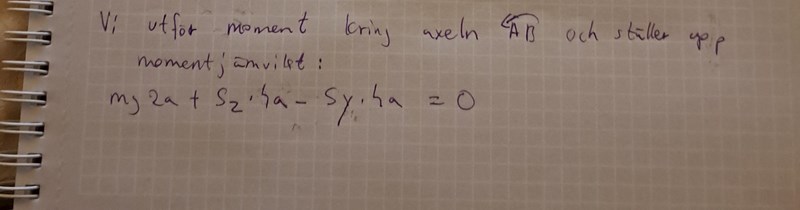 Vi utför moment kring axeln AB och ställer upp
momentjämvikt:
mg2a + Sz·4a - Sy·4a = 0